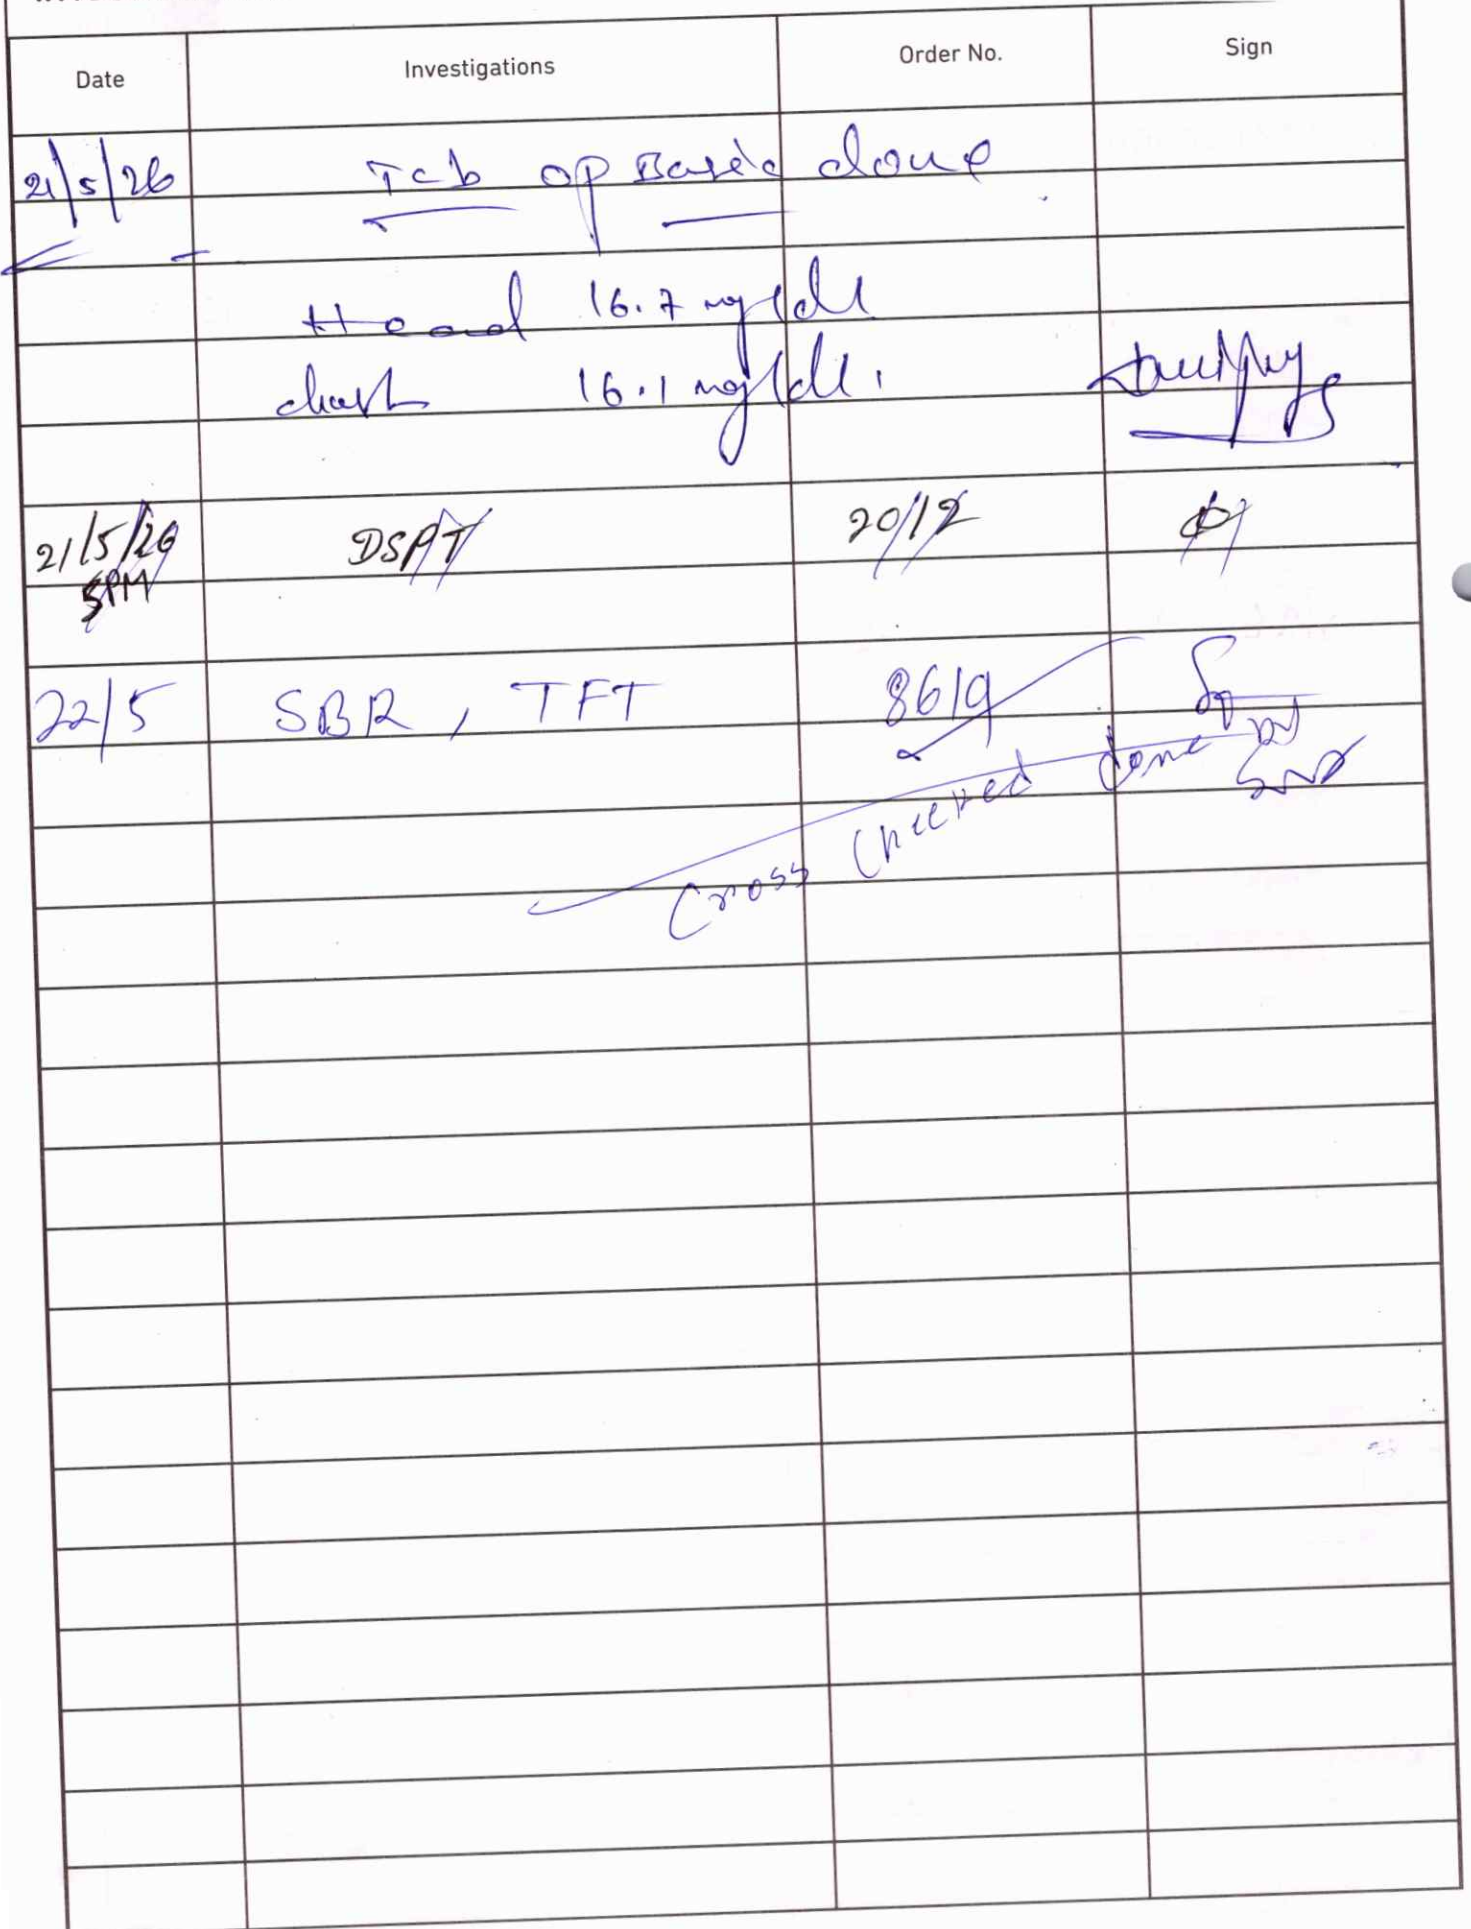 Date Investigations Order No. Sign
21/5/26 Tcb OP Basic done
Head 16.7 mg/dl
chest 16.1 mg/dl.
21/5/26 DSPT 20/12
5PM
22/5 SBR, TFT 8619
Cross Checked done by